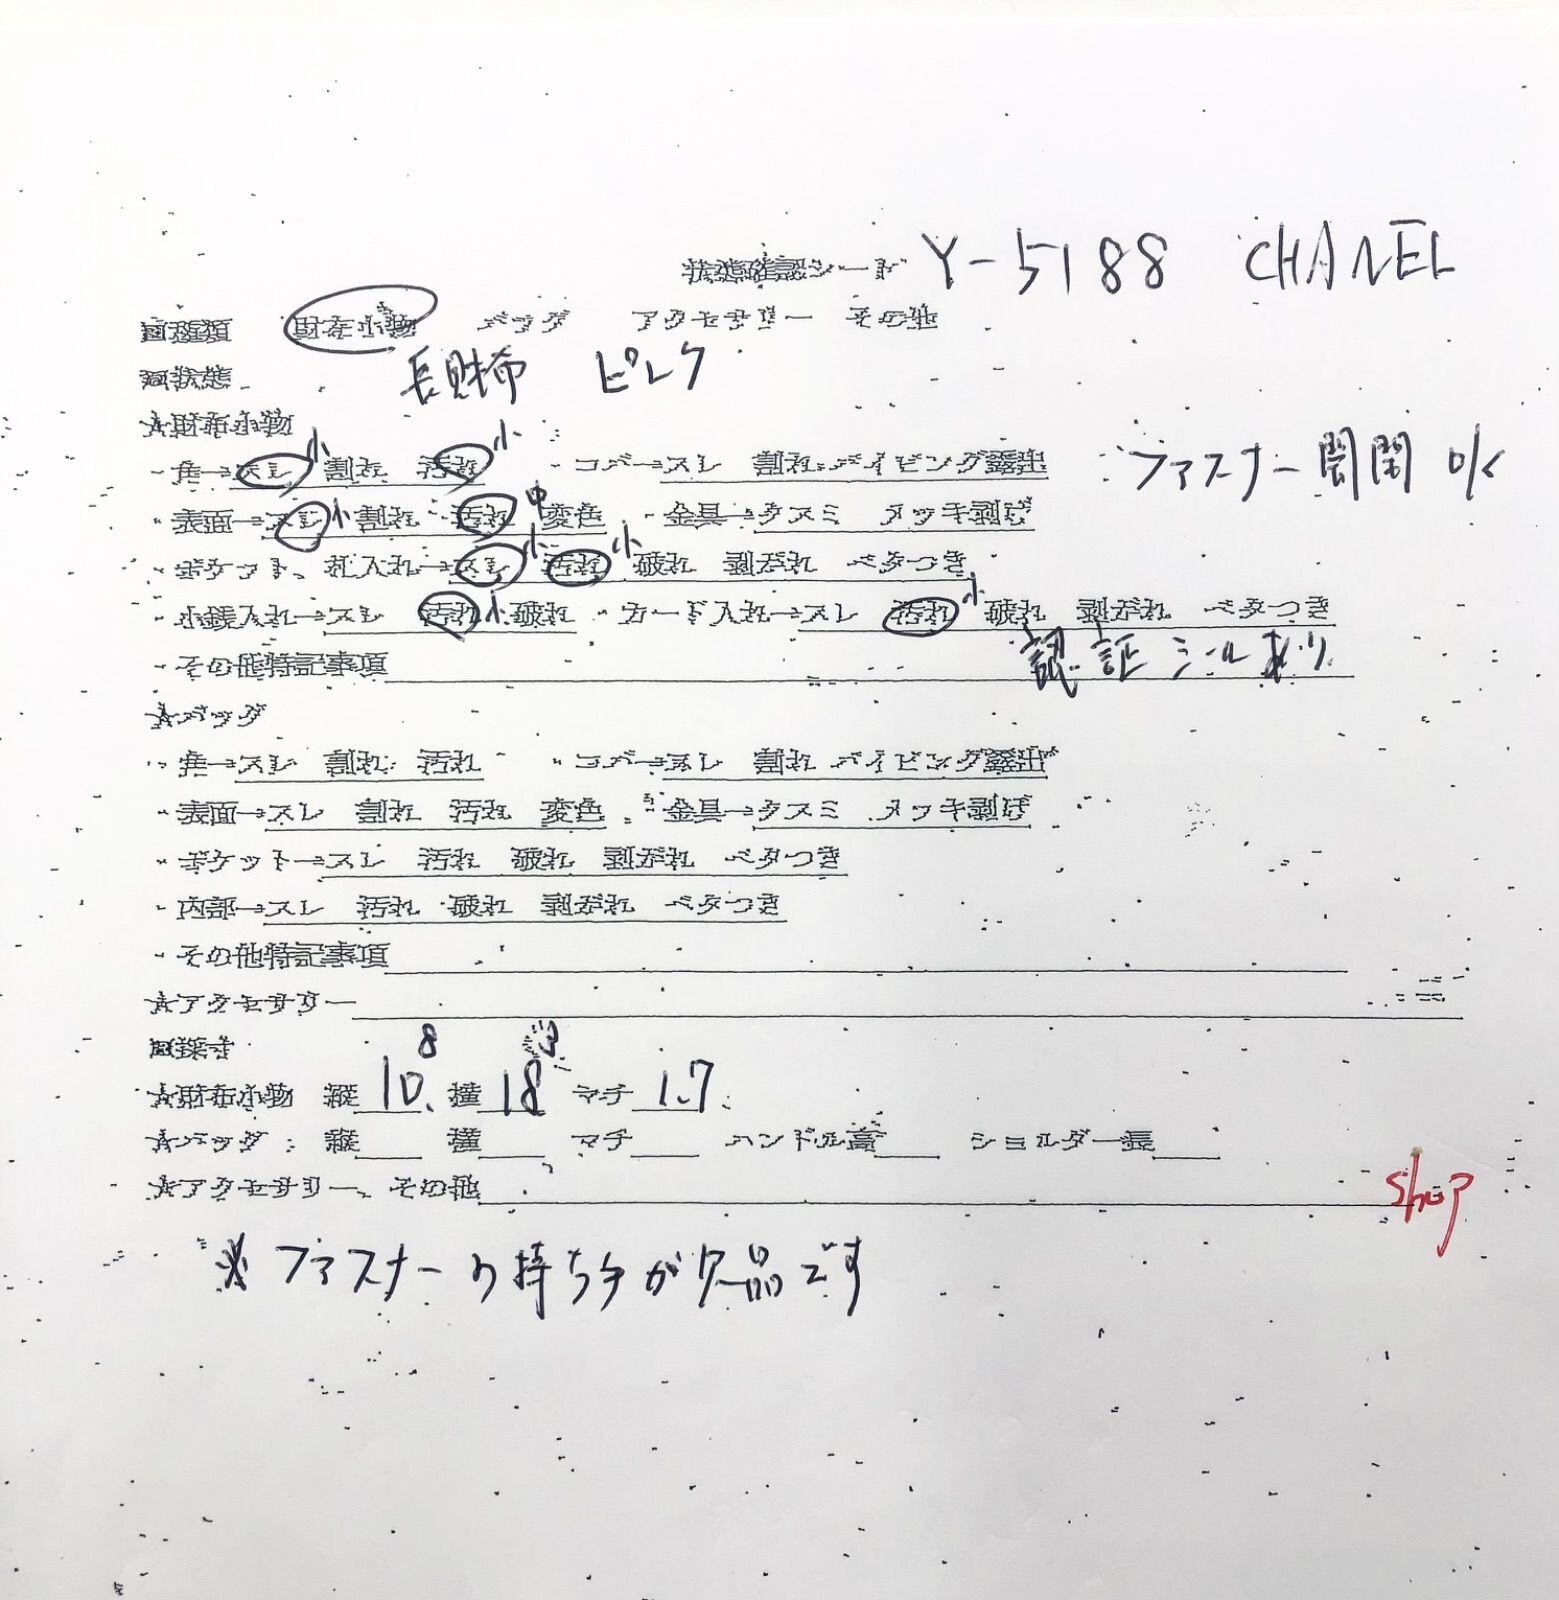 状態確認シート Y-5188 CHANEL
■種類 財布小物 バッグ アクセサリー その他
■状態 長財布 ピンク
★財布小物
・角→スレ 小 割れ 汚れ 小 ・コバ→スレ 割れ パイピング露出 ファスナー開閉 OK
・表面→スレ 小 割れ 汚れ 中 変色 ・金具→クスミ メッキ剥げ
・ポケット、札入れ→スレ 小 汚れ 小 破れ 剥がれ ベタつき
・小銭入れ→スレ 汚れ 小 破れ ・カード入れ→スレ 汚れ 小 破れ 剥がれ ベタつき
・その他特記事項 認証シールあり
★バッグ
・角→スレ 割れ 汚れ ・コバ→スレ 割れ パイピング露出
・表面→スレ 割れ 汚れ 変色 ・金具→クスミ メッキ剥げ
・ポケット→スレ 汚れ 破れ 剥がれ ベタつき
・内部→スレ 汚れ 破れ 剥がれ ベタつき
・その他特記事項
★アクセサリー
■採寸
★財布小物 縦 10.8 横 18 マチ 1.7
★バッグ 縦 横 マチ ハンドル高 ショルダー長
★アクセサリー、その他 shop
※ファスナーの持ち手が欠品です